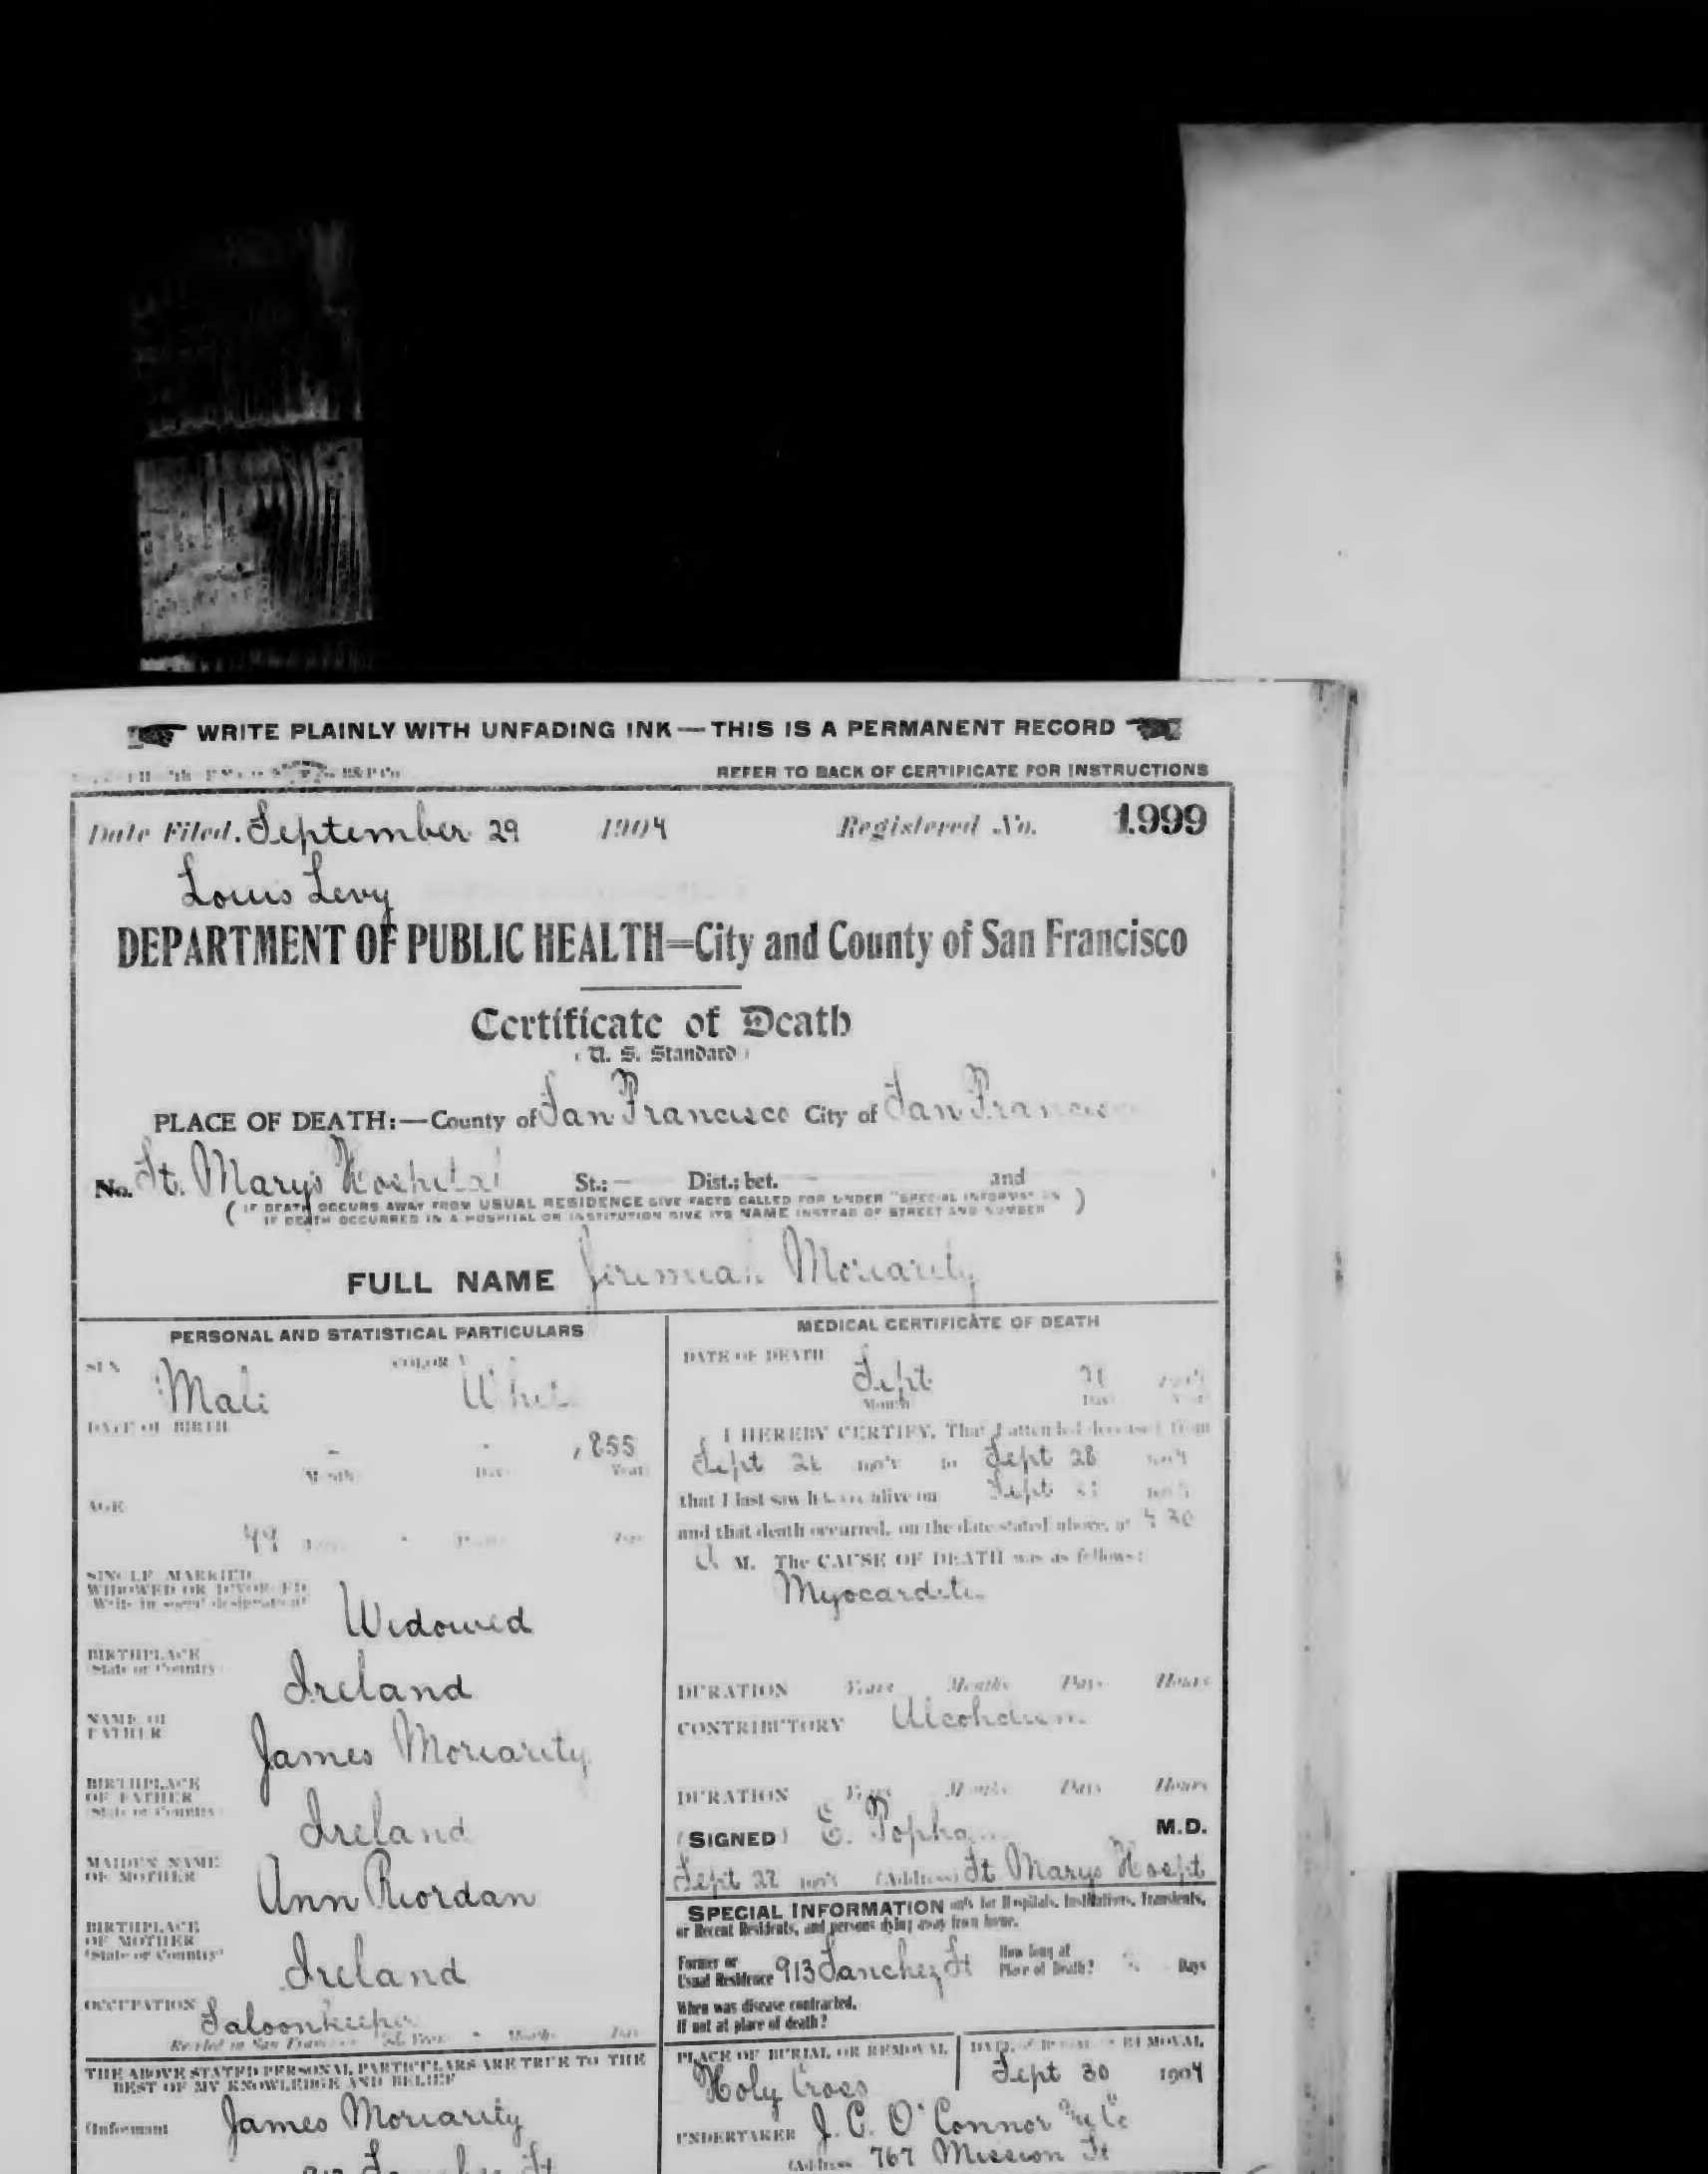 WRITE PLAINLY WITH UNFADING INK — THIS IS A PERMANENT RECORD
REFER TO BACK OF CERTIFICATE FOR INSTRUCTIONS
Date Filed. September 29 1904 Registered No. 1999
Louis Levy
DEPARTMENT OF PUBLIC HEALTH=City and County of San Francisco
Certificate of Death
(U. S. Standard)
PLACE OF DEATH:—County of San Francisco City of San Francisco
No. St. Marys Hospital St.; Dist.; bet. and
( IF DEATH OCCURS AWAY FROM USUAL RESIDENCE GIVE FACTS CALLED FOR UNDER "SPECIAL INFORMATION" )
IF DEATH OCCURRED IN A HOSPITAL OR INSTITUTION GIVE ITS NAME INSTEAD OF STREET AND NUMBER
FULL NAME Jeremiah Moriarity
PERSONAL AND STATISTICAL PARTICULARS
SEX Male COLOR White
DATE OF BIRTH
1855
Month Day Year
AGE
49
SINGLE, MARRIED,
WIDOWED OR DIVORCED
Widowed
BIRTHPLACE
State or Country
Ireland
NAME OF
FATHER
James Moriarity
BIRTHPLACE
OF FATHER
State or Country
Ireland
MAIDEN NAME
OF MOTHER
Ann Riordan
BIRTHPLACE
OF MOTHER
(State or Country)
Ireland
OCCUPATION Saloonkeeper
Resided in San Francisco Years Months Days
THE ABOVE STATED PERSONAL PARTICULARS ARE TRUE TO THE
BEST OF MY KNOWLEDGE AND BELIEF
(Informant James Moriarity
MEDICAL CERTIFICATE OF DEATH
DATE OF DEATH
Sept
Month Day Year
I HEREBY CERTIFY, That I attended deceased from
Sept 1904 to Sept 28 1904
that I last saw alive on Sept
and that death occurred, on the date stated above, at 30
A M. The CAUSE OF DEATH was as follows:
Myocarditis
DURATION Years Months Days Hours
CONTRIBUTORY Alcoholism
DURATION Years Months Days Hours
(SIGNED) E. Popham M.D.
Sept 1904 (Address) St Marys Hospt
SPECIAL INFORMATION only for Hospitals, Institutions, Transients,
or Recent Residents, and persons dying away from home.
Former or
Usual Residence 913 Sanchez St
How long at
Place of Death? Days
When was disease contracted,
If not at place of death?
PLACE OF BURIAL OR REMOVAL
Holy Cross
DATE of BURIAL or REMOVAL
Sept 30 1904
UNDERTAKER J. C. O'Connor & Co
(Address 767 Mission St